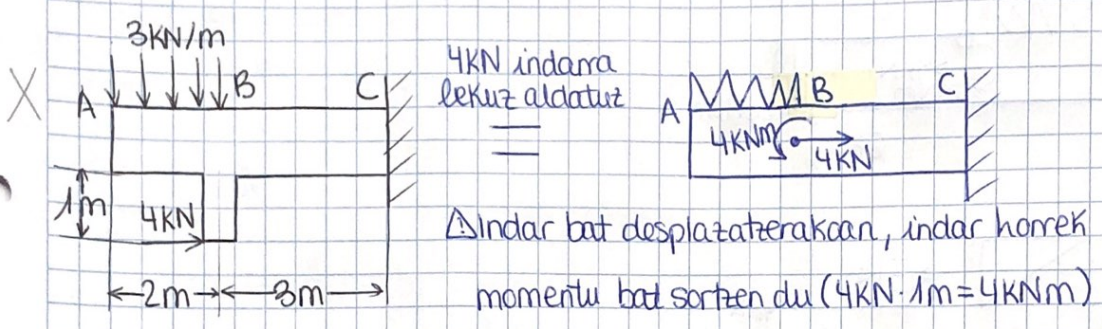 3KN/m
A
B
C
1m
4KN
2m
3m
4KN indarra
lekuz aldatuz
=
A
B
C
4KNm
4KN
⚠Indar bat desplazatzerakoan, indar horrek
momentu bat sortzen du (4KN·1m=4KNm)